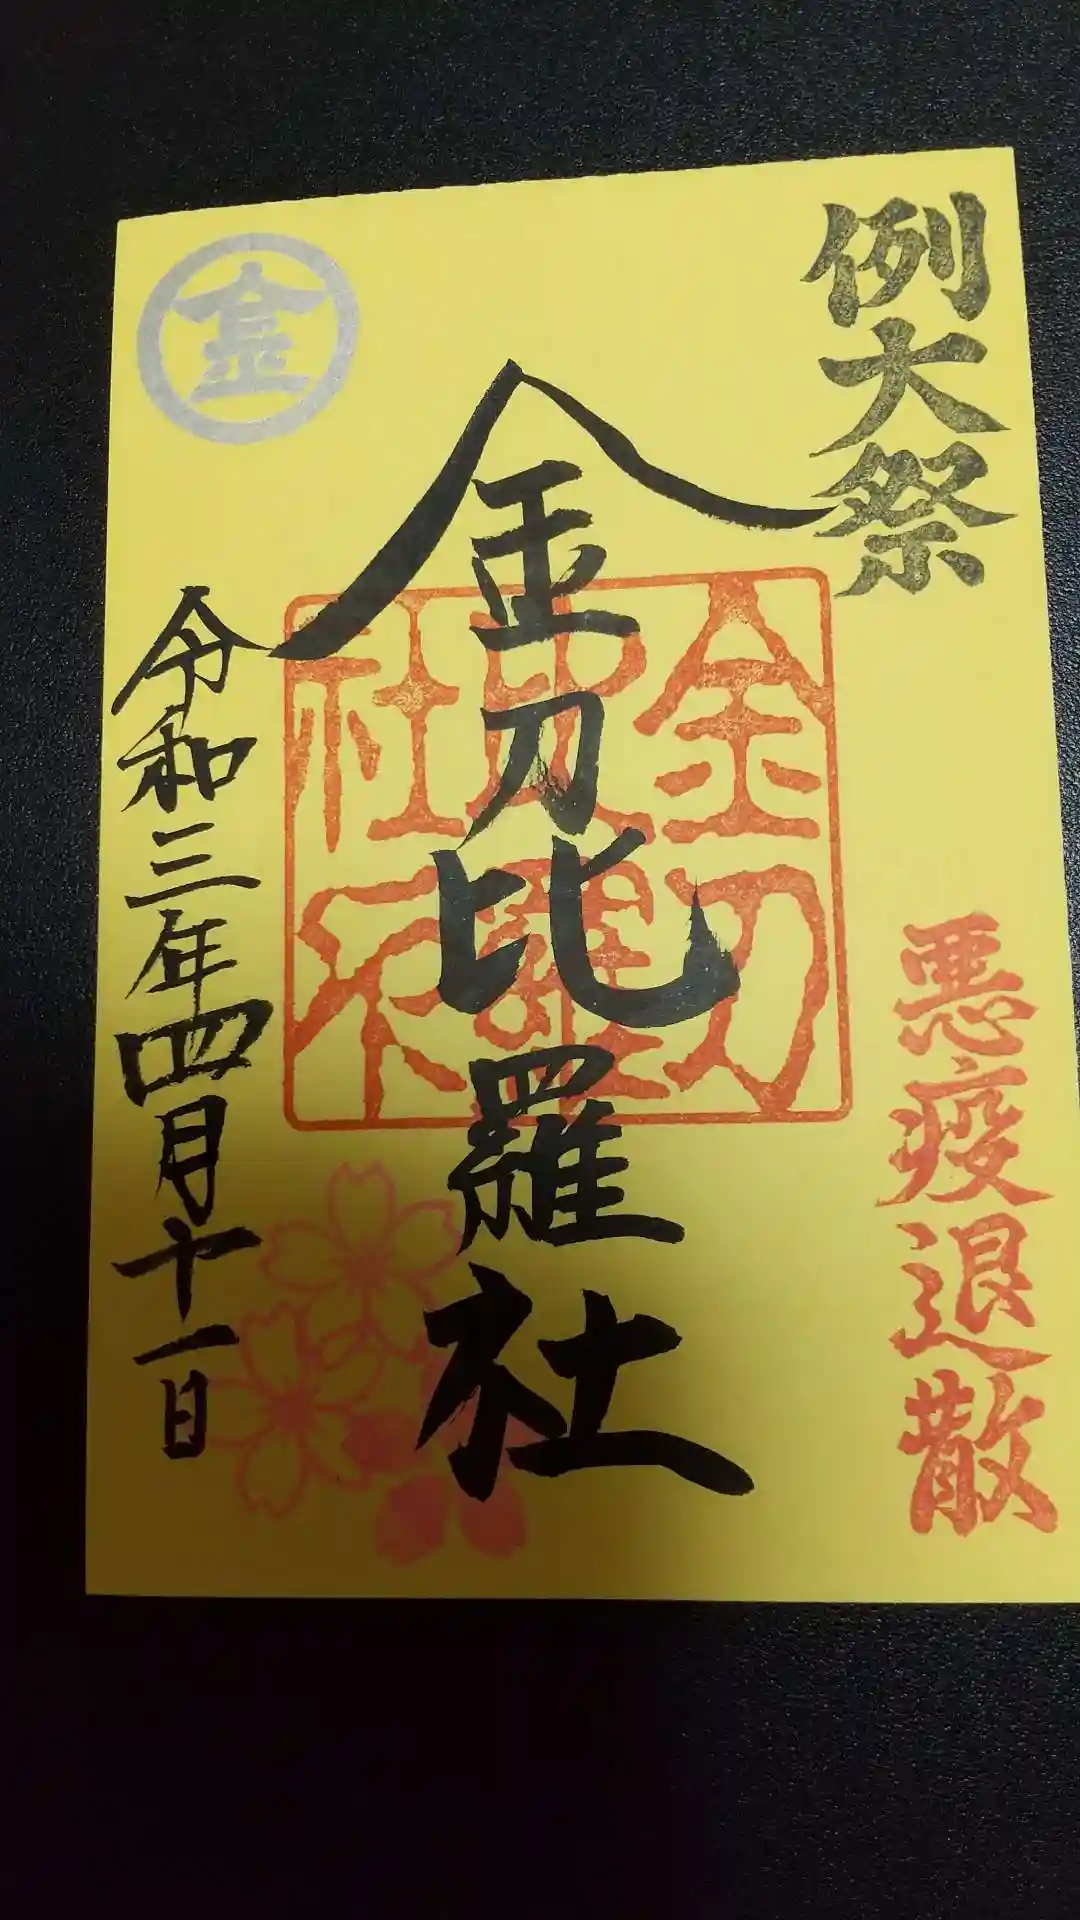 例大祭
悪疫退散
金刀比羅社
金刀
比羅
社
令和三年四月十一日
金